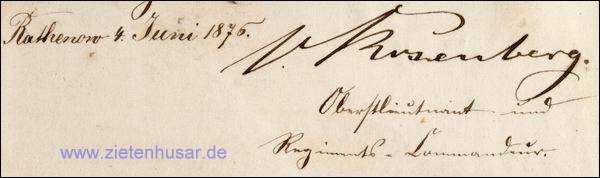 Rathenow 4. Juni 1876.
v. Rosenberg.
Oberstlieutnant und
Regiments-Commandeur.
www.zietenhusar.de